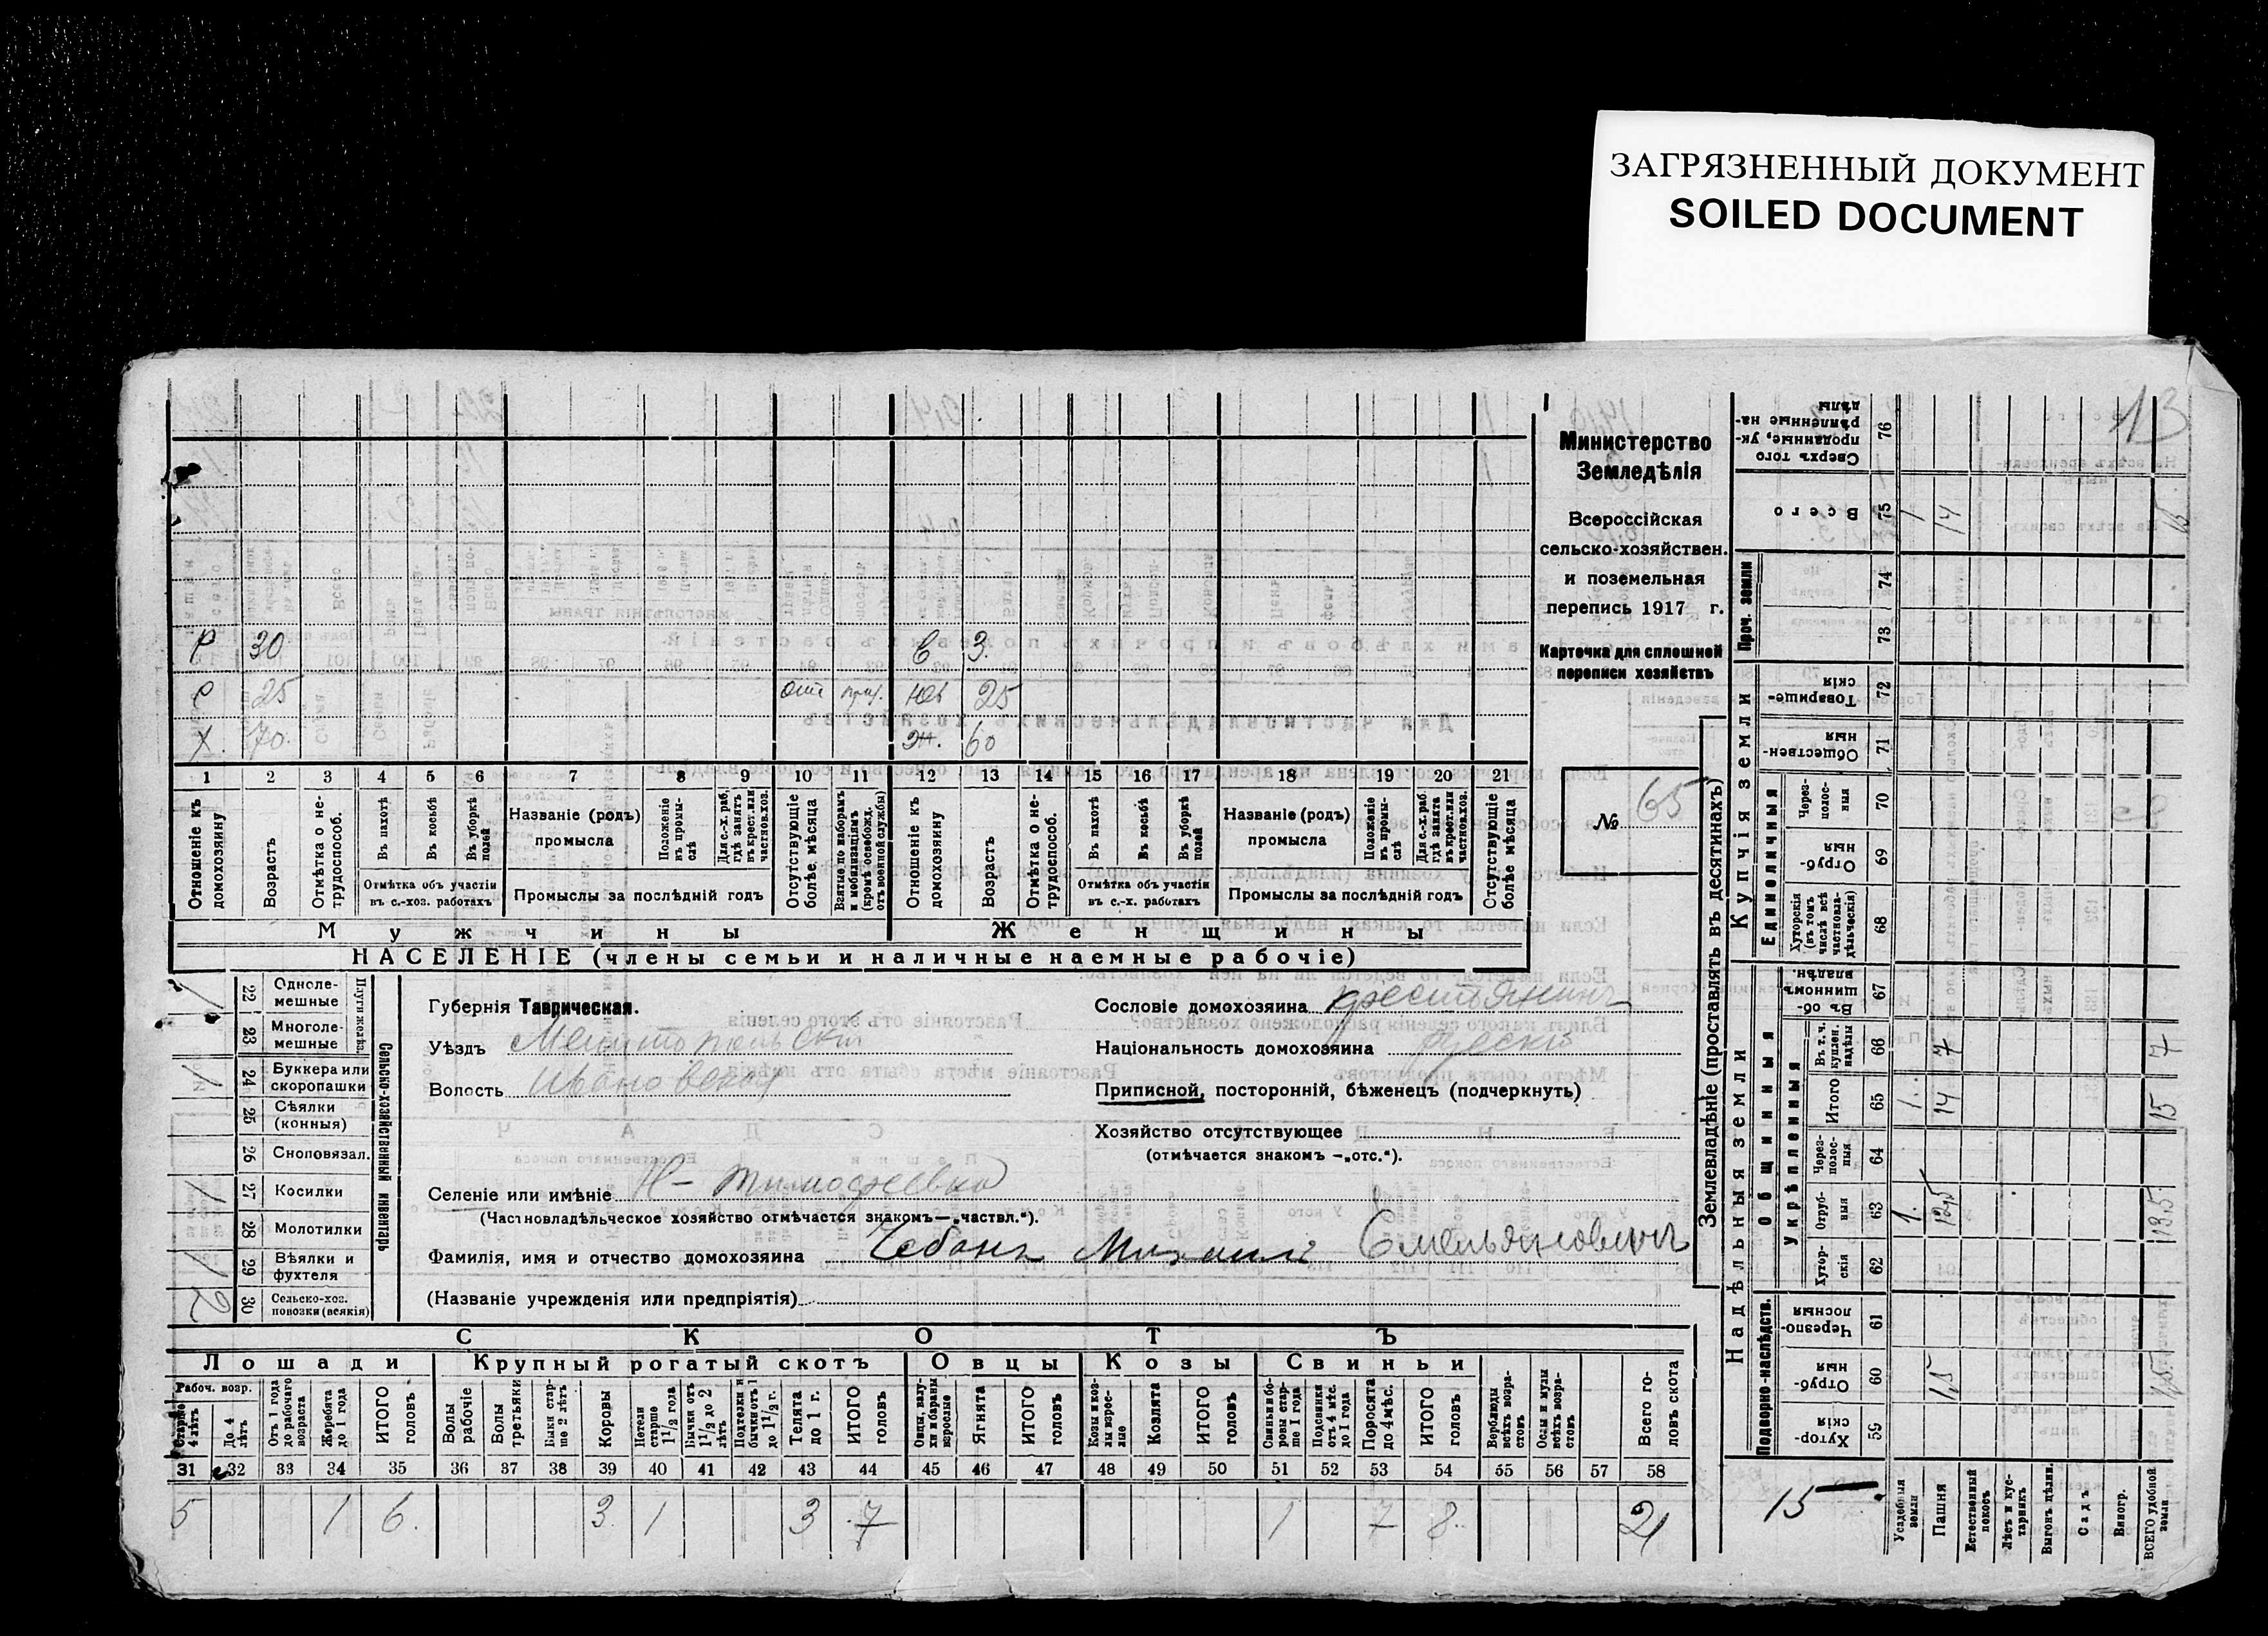 ЗАГРЯЗНЕННЫЙ ДОКУМЕНТ
SOILED DOCUMENT
13
Министерство
Земледѣлія
Всероссійская
сельско-хозяйствен.
и поземельная
перепись 1917 г.
Карточка для сплошной
переписи хозяйствъ
№ 65
С 30 Е 3.
С 25 Юв 25
Х. 70. Ж. 60
1 2 3 4 5 6 7 8 9 10 11 12 13 14 15 16 17 18 19 20 21
Отношеніе къ домохозяину
Возрастъ
Отмѣтка о нетрудоспособ.
Въ пахотѣ
Въ косьбѣ
Въ уборкѣ полей
Отмѣтка объ участіи въ с.-хоз. работахъ
Названіе (родъ) промысла
Положеніе въ промыслѣ
Для с.-х. раб. гдѣ занятъ въ крест. или частнов. хоз.
Промыслы за послѣдній годъ
Отсутствующіе болѣе мѣсяца
Взятые по наборамъ и мобилизаціямъ (кромѣ освобожд. отъ военной службы)
Отношеніе къ домохозяину
Возрастъ
Отмѣтка о нетрудоспособ.
Въ пахотѣ
Въ косьбѣ
Въ уборкѣ полей
Отмѣтка объ участіи въ с.-х. работахъ
Названіе (родъ) промысла
Положеніе въ промыслѣ
Для с.-х. раб. гдѣ занята въ крест. или частнов. хоз.
Промыслы за послѣдній годъ
Отсутствующіе болѣе мѣсяца
Мужчины Женщины
НАСЕЛЕНІЕ (члены семьи и наличные наемные рабочіе)
Сельско-хозяйственный инвентарь
Плуги желѣз.
22 Одноле-мешные 1
23 Многоле-мешные
24 Буккера или скоропашки 1
25 Сѣялки (конныя)
26 Сноповязал.
27 Косилки 1
28 Молотилки
29 Вѣялки и фухтеля 1
30 Сельско-хоз. повозки (всякія) 2
Губернія Таврическая.
Уѣздъ Мелитопольскій
Волость Ивановская
Сословіе домохозяина крестьянинъ
Національность домохозяина Русскій
Приписной, посторонній, бѣженецъ (подчеркнуть)
Хозяйство отсутствующее
(отмѣчается знакомъ —„отс.“).
Селеніе или имѣніе Н-Тимофеевка
(Частновладѣльческое хозяйство отмѣчается знакомъ—„частвл.“).
Фамилія, имя и отчество домохозяина Чебанъ Михаилъ Емельяновичъ
(Названіе учрежденія или предпріятія)
СКОТЪ
Лошади Крупный рогатый скотъ Овцы Козы Свиньи
Рабоч. возр.
Старше 4 лѣтъ
До 4 лѣтъ
Отъ 1 года до рабочаго возраста
Жеребята до 1 года
ИТОГО головъ
Волы рабочіе
Волы третьяки
Быки старше 2 лѣтъ
Коровы
Нетели старше 1½ года
Бычки отъ 1½ до 2 лѣтъ
Подтелки и бычки отъ 1 до 1½ г.
Телята до 1 г.
ИТОГО головъ
Овцы, валухи и бараны взрослые
Ягнята
ИТОГО головъ
Козы и козлы взрослые
Козлята
ИТОГО головъ
Свиньи и боровы старше 1 года
Подсвинки отъ 4 мѣс. до 1 года
Поросята до 4 мѣс.
ИТОГО головъ
Верблюды всѣхъ возрастовъ
Ослы и мулы всѣхъ возрастовъ
Всего головъ скота
31 32 33 34 35 36 37 38 39 40 41 42 43 44 45 46 47 48 49 50 51 52 53 54 55 56 57 58
5 1 6. 3. 1 3 7 1 7 8. 21
Землевладѣніе (проставлять въ десятинахъ)
Купчія земли
Надѣльныя земли
Сверхъ того проданные, укрѣпленные надѣлы 76
Всего 75 1 14 15
Проч. земли 74 73
Товарищескія 72
Общественныя 71
Единоличныя
Черезполосныя 70
Отрубныя 69
Хуторскія (въ томъ числѣ всѣ частновладѣльческія) 68
Общинныя
Въ общинномъ владѣн. 67
Укрѣпленныя
Въ т. ч. куплен. надѣлы 66 7 7
Итого 65 1. 14 15
Черезполосныя 64
Отрубныя 63 1. 12,5 13,5
Хуторскія 62
Подворно-наслѣдств.
Черезполосныя 61
Отрубныя 60 1,5 1,5
Хуторскія 59
15
Усадебныя земли
Пашня
Естественный покосъ
Лѣсъ и кустарникъ
Выгонъ цѣлин.
Садъ
Виногр.
ВСЕГО удобной земли